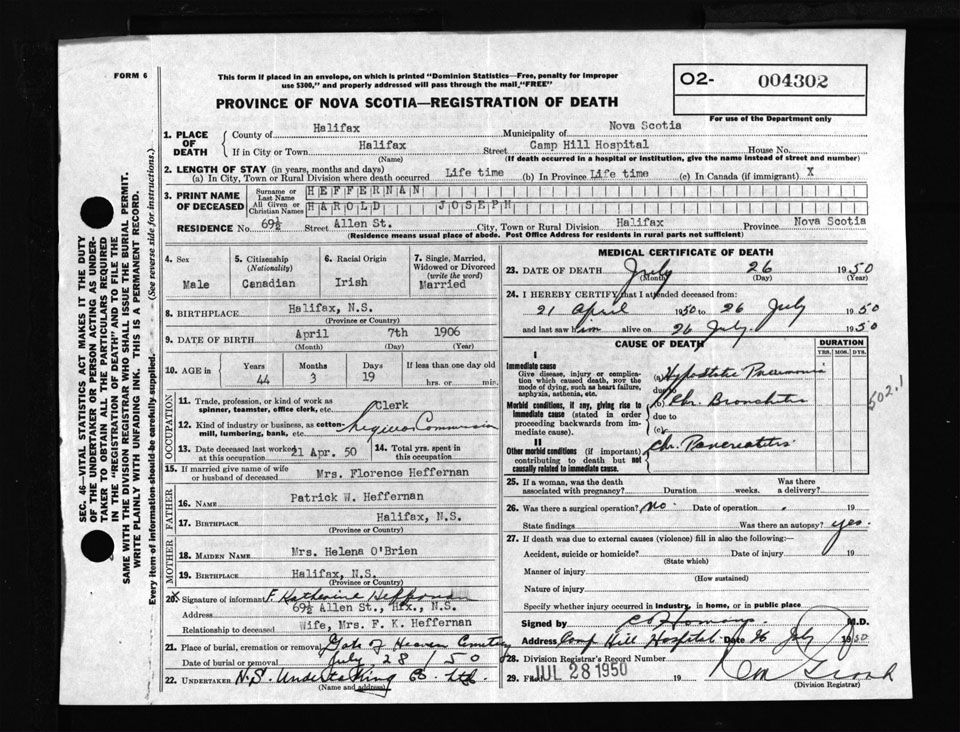 FORM 6
This form if placed in an envelope, on which is printed "Dominion Statistics—Free, penalty for improper
use $300," and properly addressed will pass through the mail, "FREE"
O2- 004302
For use of the Department only
PROVINCE OF NOVA SCOTIA—REGISTRATION OF DEATH
SEC. 46—VITAL STATISTICS ACT MAKES IT THE DUTY
OF THE UNDERTAKER OR PERSON ACTING AS UNDER-
TAKER TO OBTAIN ALL THE PARTICULARS REQUIRED
IN THE "REGISTRATION OF DEATH" AND TO FILE THE
SAME WITH THE DIVISION REGISTRAR WHO SHALL ISSUE THE BURIAL PERMIT.
WRITE PLAINLY WITH UNFADING INK. THIS IS A PERMANENT RECORD.
Every item of information should be carefully supplied. (See reverse side for instructions.)
1. PLACE OF DEATH
County of Halifax Municipality of Nova Scotia
If in City or Town Halifax Street Camp Hill Hospital House No.
(Name) (If death occurred in a hospital or institution, give the name instead of street and number)
2. LENGTH OF STAY (in years, months and days)
(a) In City, Town or Rural Division where death occurred Life time (b) In Province Life time (c) In Canada (if immigrant) X
3. PRINT NAME OF DECEASED
Surname or Last Name HEFFERNAN
All Given or Christian Names HAROLD JOSEPH
RESIDENCE No. 69½ Street Allen St. City, Town or Rural Division Halifax Province Nova Scotia
(Residence means usual place of abode. Post Office Address for residents in rural parts not sufficient)
4. Sex
Male
5. Citizenship
(Nationality)
Canadian
6. Racial Origin
Irish
7. Single, Married,
Widowed or Divorced
(write the word)
Married
8. BIRTHPLACE Halifax, N.S.
(Province or Country)
9. DATE OF BIRTH April 7th 1906
(Month) (Day) (Year)
10. AGE in
Years 44
Months 3
Days 19
If less than one day
hrs. or min.
OCCUPATION
11. Trade, profession, or kind of work as
spinner, teamster, office clerk, etc. Clerk
12. Kind of industry or business, as cotton-
mill, lumbering, bank, etc. Liquor Commission
13. Date deceased last worked
at this occupation 21 Apr. 50
14. Total yrs. spent in
this occupation
15. If married give name of wife
or husband of deceased Mrs. Florence Heffernan
FATHER
16. NAME Patrick W. Heffernan
17. BIRTHPLACE Halifax, N.S.
(Province or Country)
MOTHER
18. MAIDEN NAME Mrs. Helena O'Brien
19. BIRTHPLACE Halifax, N.S.
(Province or Country)
20. X Signature of informant F. Katherine Heffernan
Address 69½ Allen St., Hfx., N.S.
Relationship to deceased Wife, Mrs. F. K. Heffernan
21. Place of burial, cremation or removal Gate of Heaven Cemetery
Date of burial or removal July 28 / 50
22. UNDERTAKER N.S. Undertaking Co. Ltd.
(Name and address)
MEDICAL CERTIFICATE OF DEATH
23. DATE OF DEATH July 26 1950
(Month) (Day) (Year)
24. I HEREBY CERTIFY that I attended deceased from:
21 April 1950 to 26 July 1950
and last saw him alive on 26 July. 1950
CAUSE OF DEATH
DURATION
YRS. MOS. DYS.
I
Immediate cause
Give disease, injury or complica-
tion which caused death, not the
mode of dying, such as heart failure,
asphyxia, asthenia, etc.
(a) Hypostatic Pneumonia
due to
Morbid conditions, if any, giving rise to
immediate cause (stated in order
proceeding backwards from im-
mediate cause).
(b) Chr. Bronchitis
due to
(c)
502.1
II
Other morbid conditions (if important)
contributing to death but not
causally related to immediate cause.
Chr. Pancreatitis
25. If a woman, was the death
associated with pregnancy? Duration weeks. Was there
a delivery?
26. Was there a surgical operation? No. Date of operation 19
State findings Was there an autopsy? yes.
27. If death was due to external causes (violence) fill in also the following:—
Accident, suicide or homicide? Date of injury 19
(State which)
Manner of injury
(How sustained)
Nature of injury
Specify whether injury occurred in industry, in home, or in public place
Signed by M.D.
Address Camp Hill Hospital Date 26 July 1950
28. Division Registrar's Record Number
29. Filed JUL 28 1950 19
(Division Registrar)